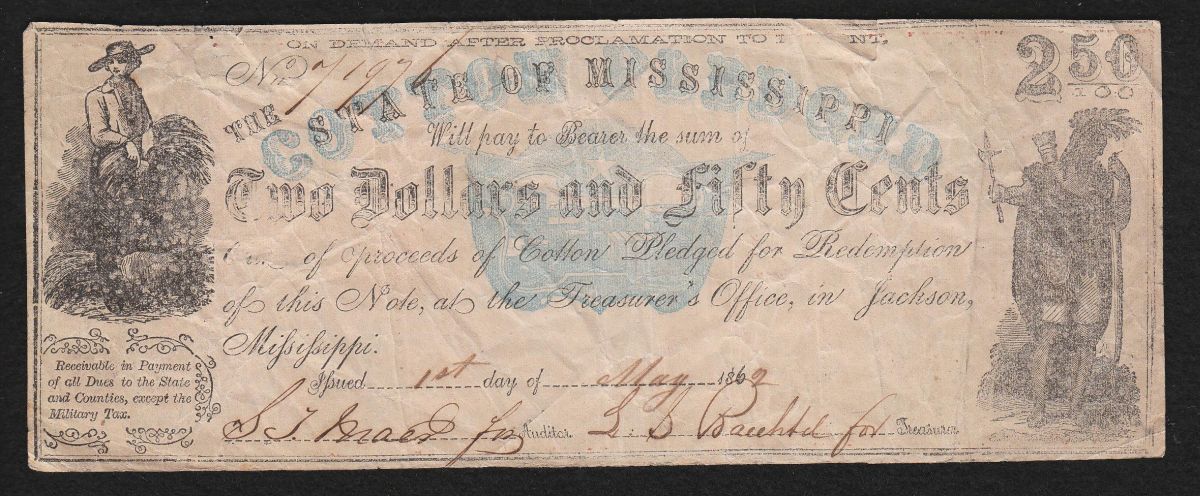 ON DEMAND AFTER PROCLAMATION TO
No 7197
2 50/100
THE STATE OF MISSISSIPPI
COTTON PLEDGED
Will pay to Bearer the sum of
Two Dollars and Fifty Cents
of proceeds of Cotton Pledged for Redemption
of this Note, at the Treasurer's Office, in Jackson,
Mississippi.
Issued 1st day of May 1862
for Auditor. for Treasurer
Receivable in Payment
of all Dues to the State
and Counties, except the
Military Tax.